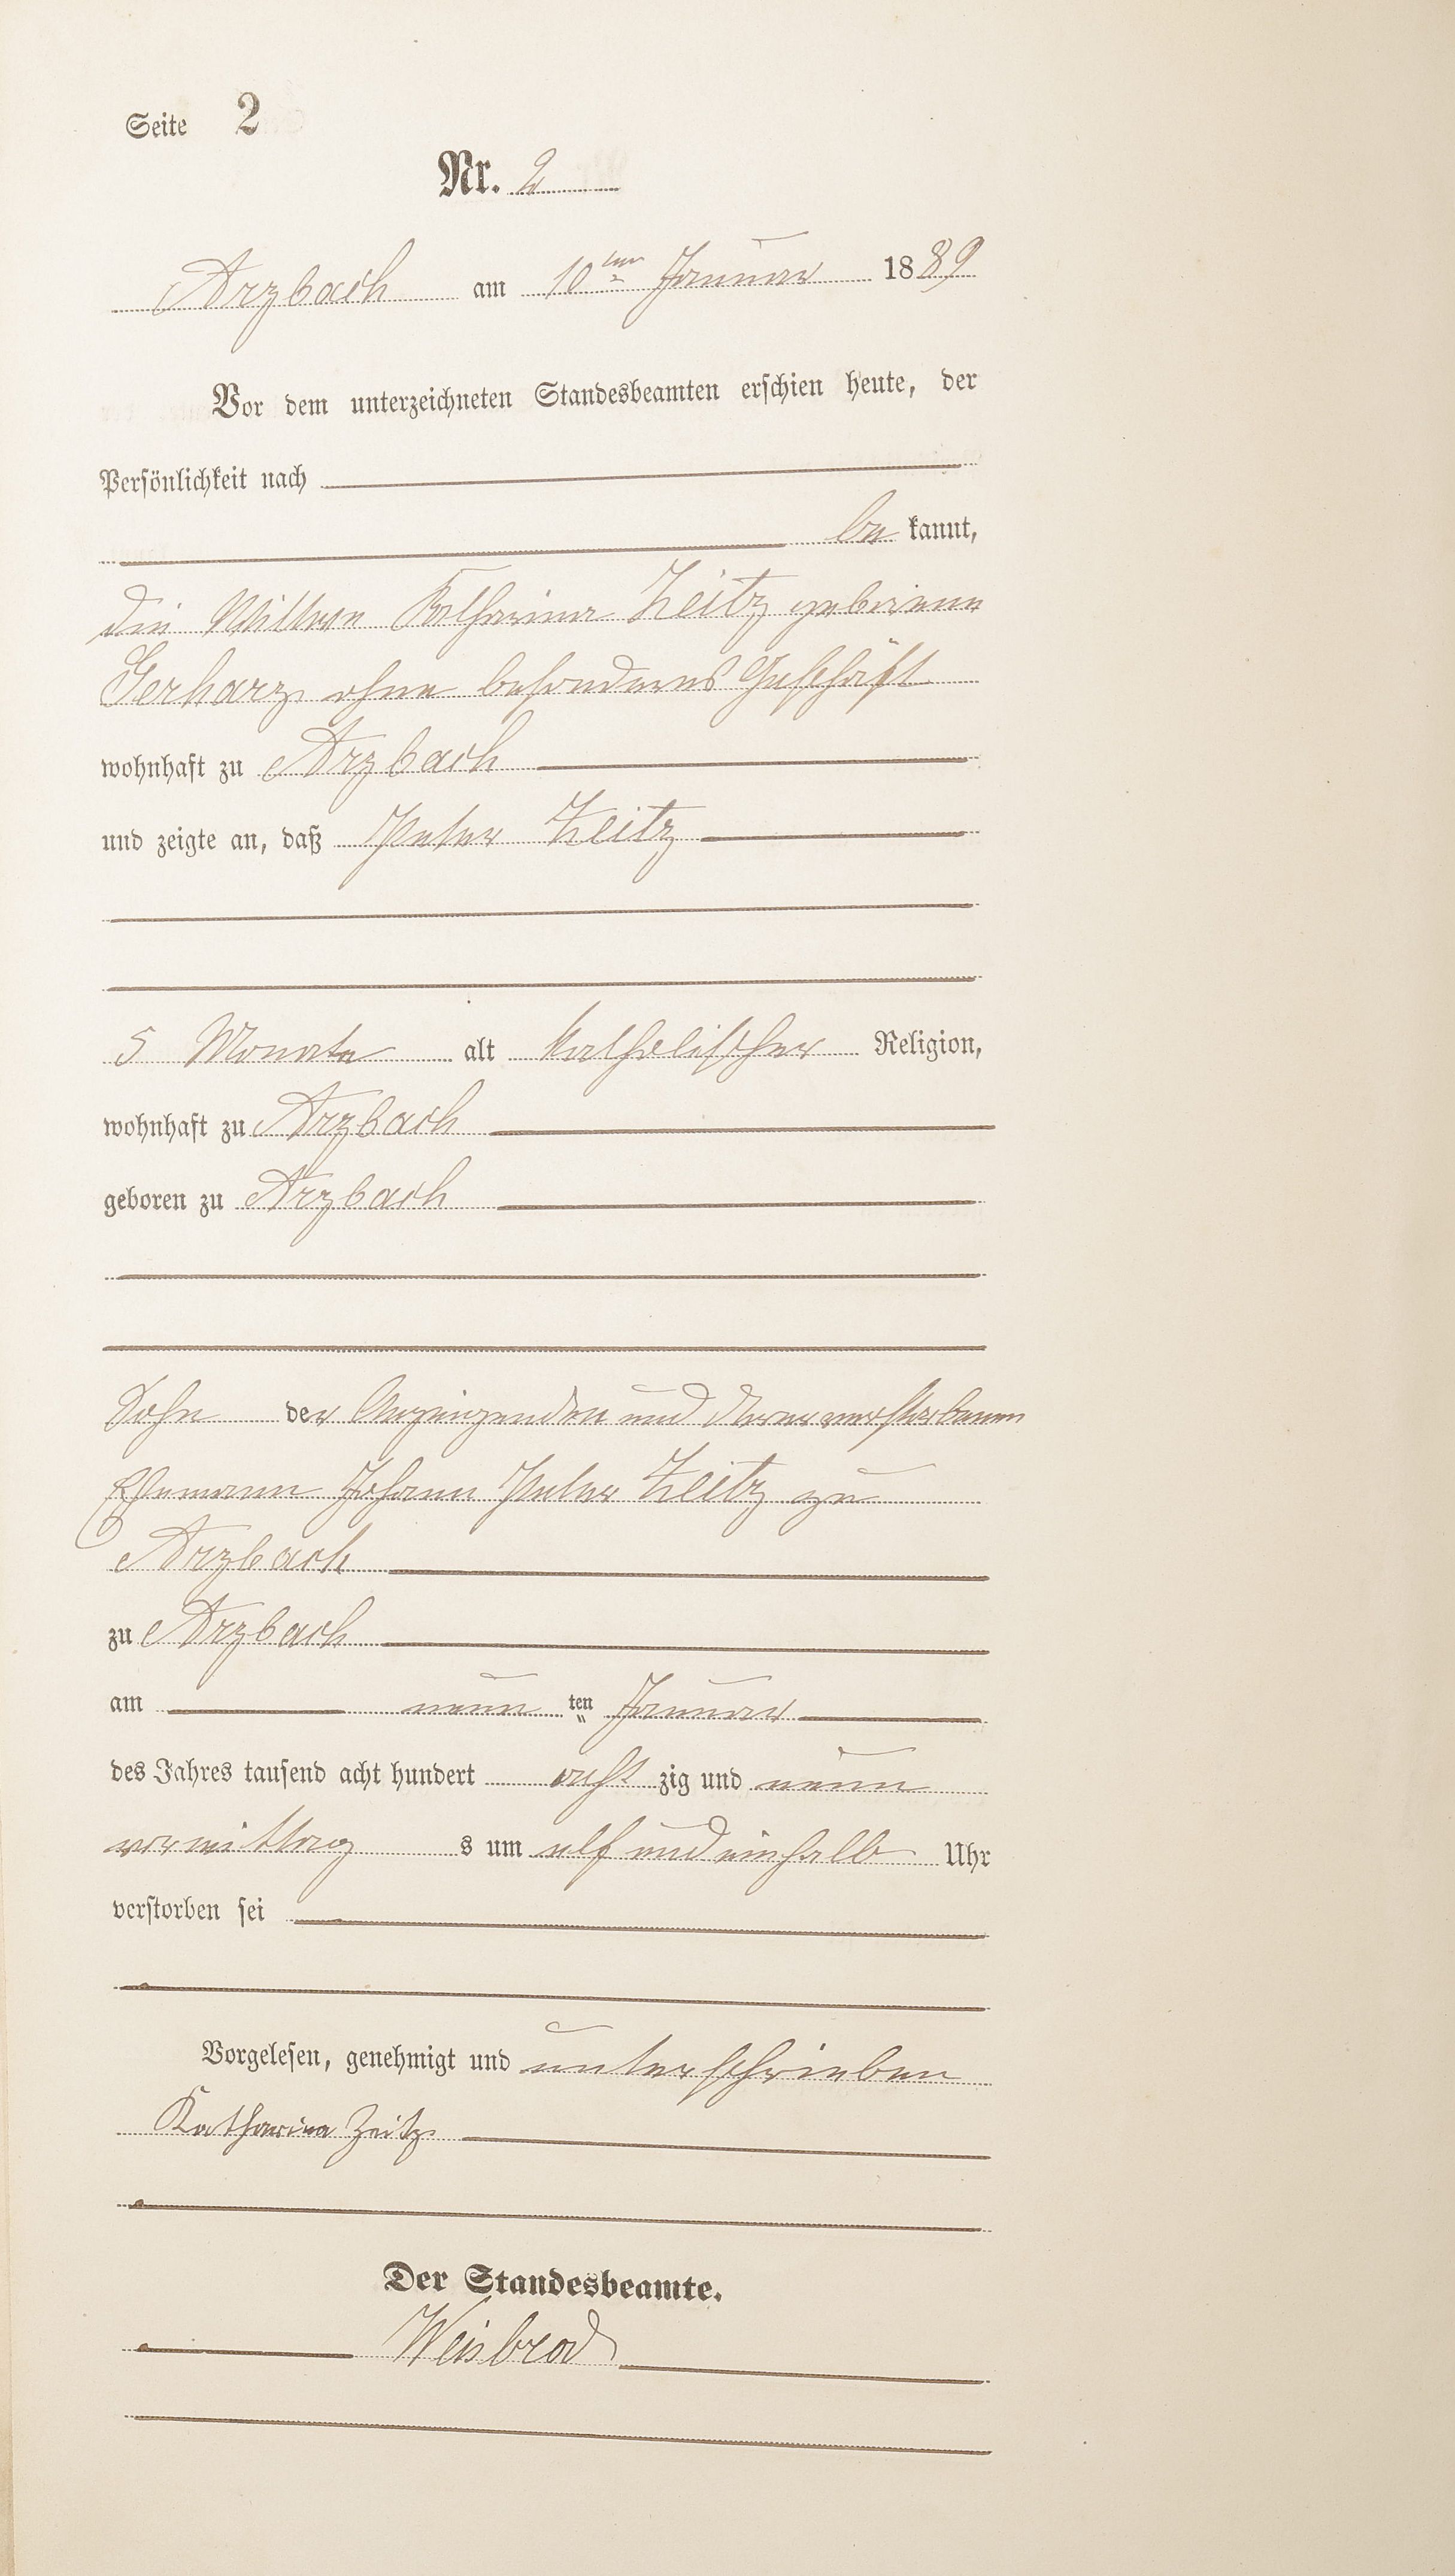 Seite 2
Nr. 2
Arzbach am 10ten Januar 1889
Vor dem unterzeichneten Standesbeamten erschien heute, der
Persönlichkeit nach
be kannt,
die Wittwe Katharina Zeitz geborene
Gerharz ohne besonderes Geschäft
wohnhaft zu Arzbach
und zeigte an, daß Peter Zeitz
5 Monate alt katholischer Religion,
wohnhaft zu Arzbach
geboren zu Arzbach
Sohn der Anzeigenden und deren verstorbenen
Ehemann Johann Peter Zeitz zu
Arzbach
zu Arzbach
am neun ten Januar
des Jahres tausend acht hundert acht zig und neun
vormittag s um elf und einhalb Uhr
verstorben sei
Vorgelesen, genehmigt und unterschrieben
Katharina Zeitz
Der Standesbeamte.
Weisbrod